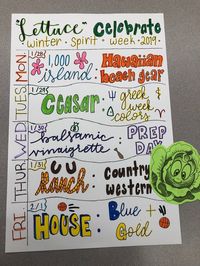 "Lettuce" Celebrate
winter · spirit · week · 2019
MON. 1/28 1,000 island: Hawaiian beach gear
TUES. 1/29 Ceasar: greek & week colors
WED. 1/30 balsamic vinaigrette: PREP DAY
THUR. 1/31 Ranch: Country western
FRI. 2/1 HOUSE: Blue + Gold